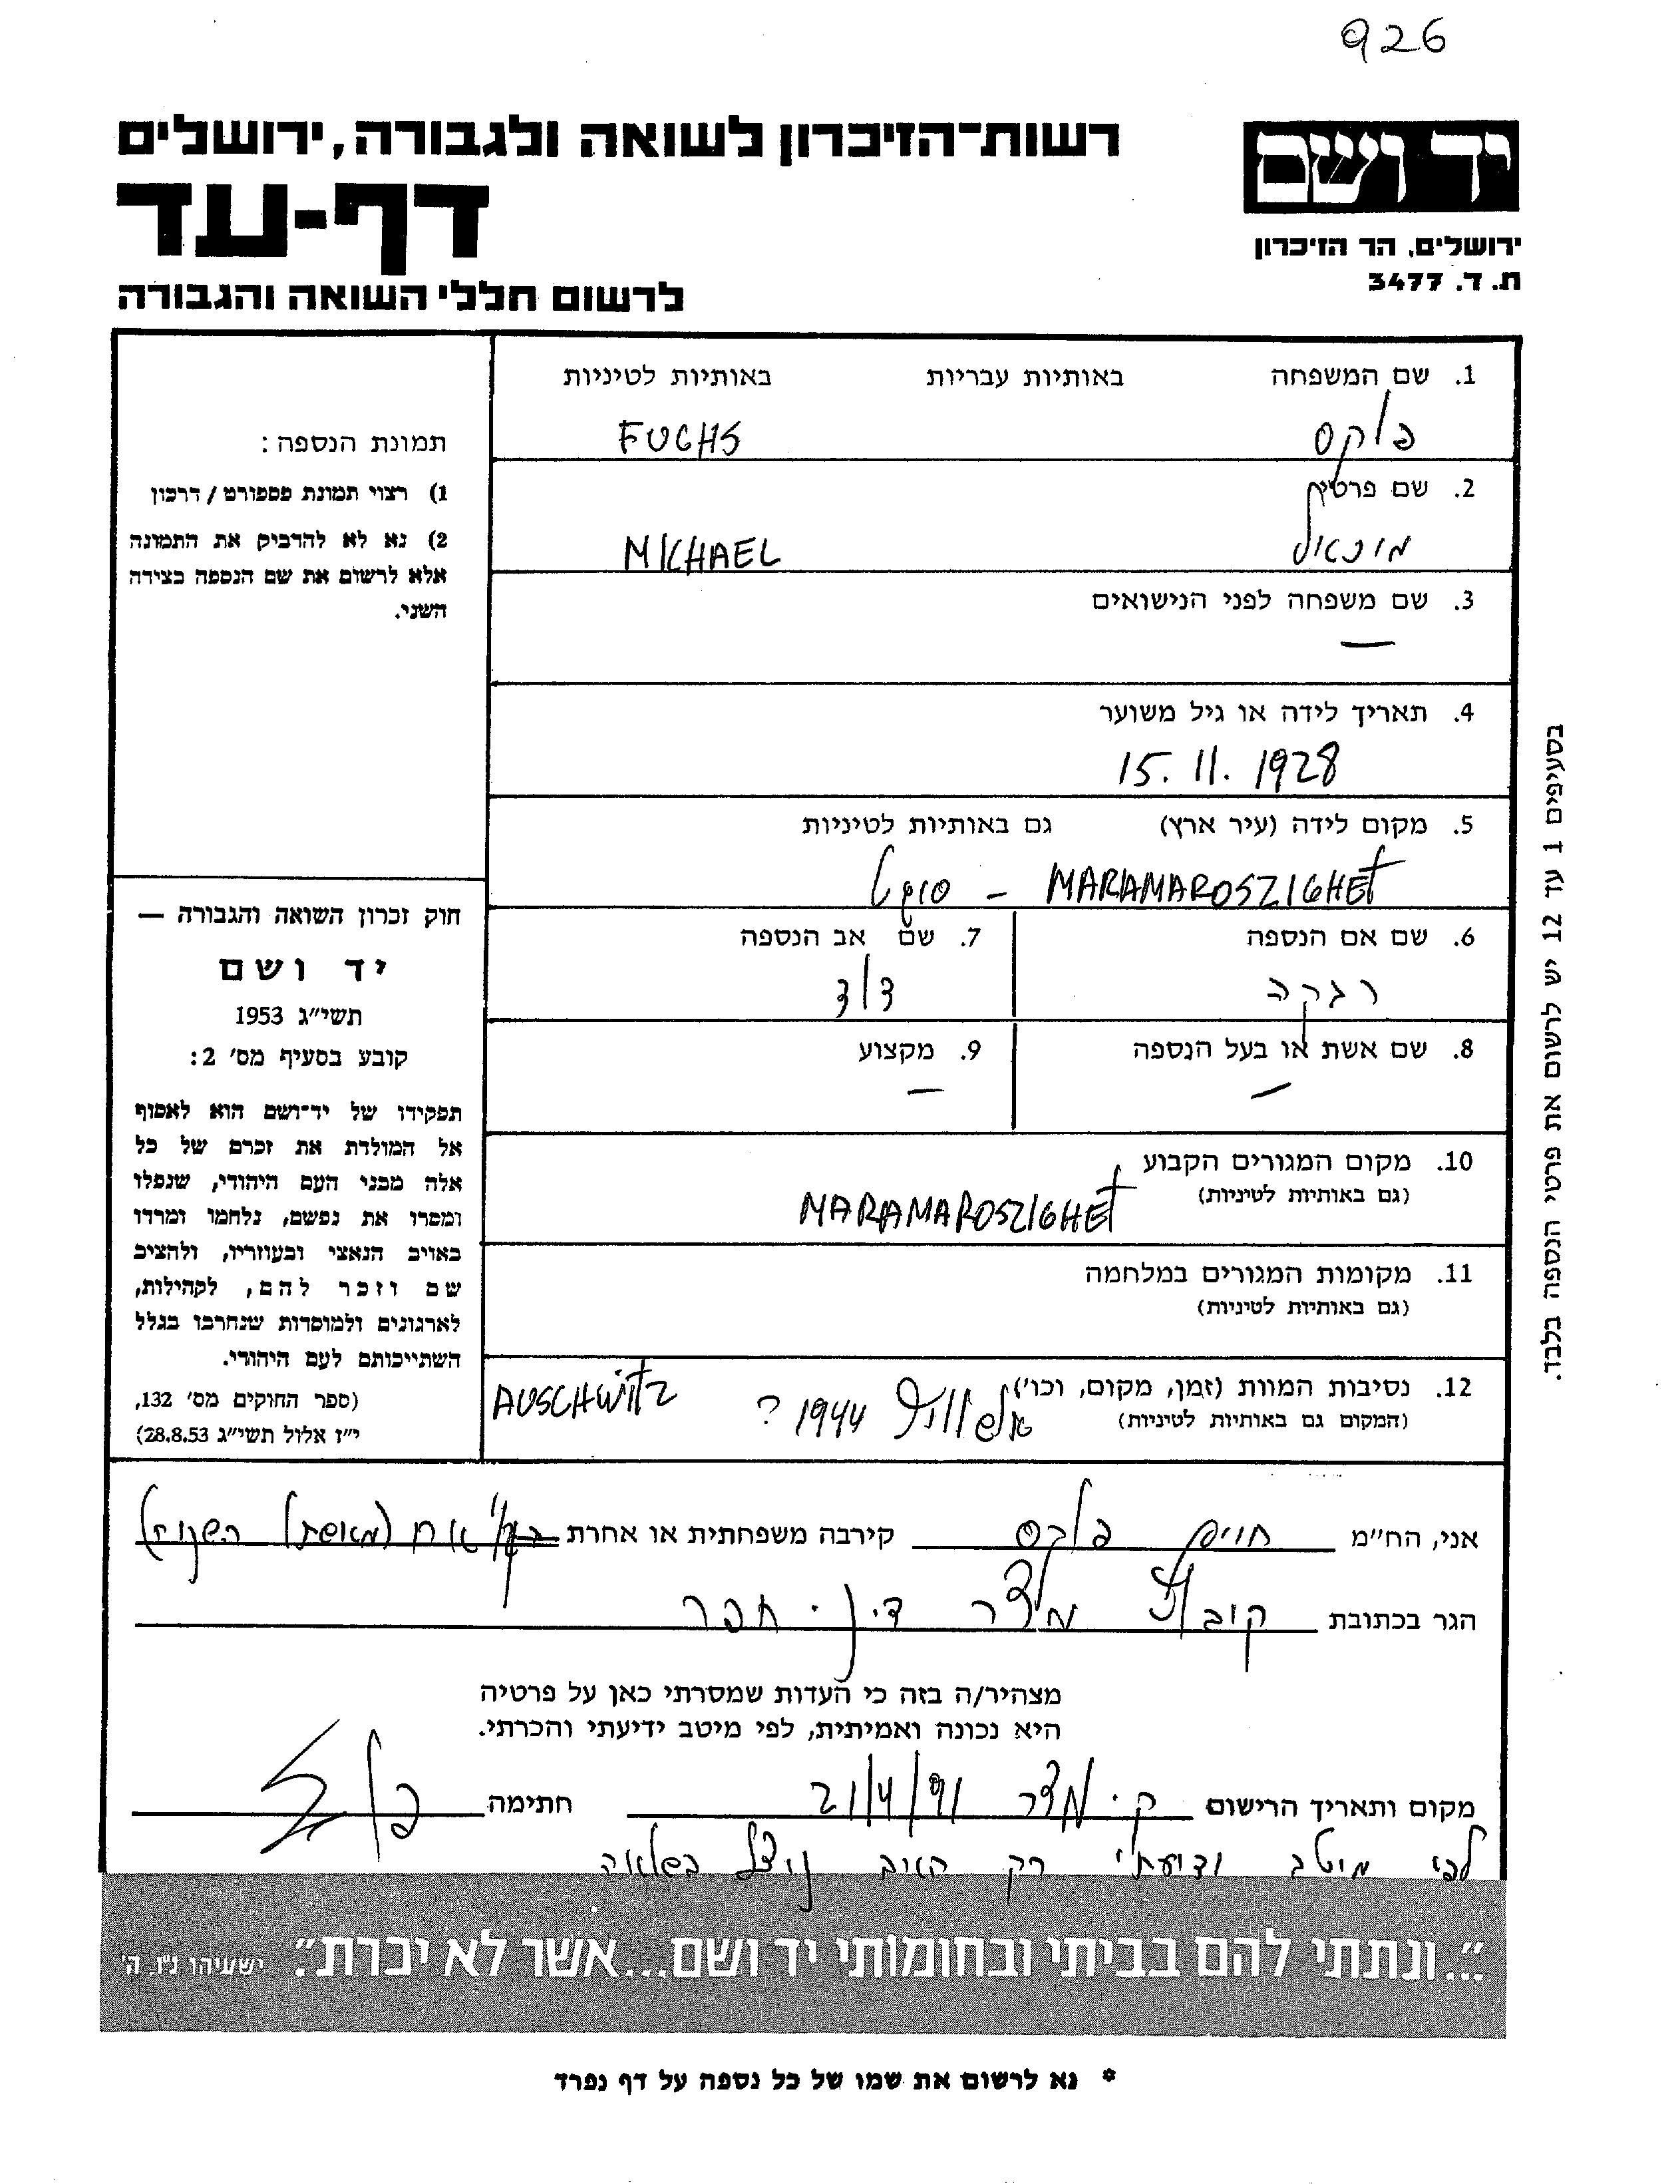 926
רשות־הזיכרון לשואה ולגבורה, ירושלים
יד ושם
דף-עד
ירושלים, הר הזיכרון
ת. ד. 3477
לרשום חללי השואה והגבורה
1. שם המשפחה באותיות עבריות באותיות לטיניות
פוקס FUCHS
2. שם פרטי
מיכאל MICHAEL
3. שם משפחה לפני הנישואים
—
4. תאריך לידה או גיל משוער
15. 11. 1928
5. מקום לידה (עיר ארץ) גם באותיות לטיניות
MARAMAROSZIGHET –
6. שם אם הנספה
רבקה
7. שם אב הנספה
דוד
8. שם אשת או בעל הנספה
–
9. מקצוע
–
10. מקום המגורים הקבוע
(גם באותיות לטיניות)
MARAMAROSZIGHET
11. מקומות המגורים במלחמה
(גם באותיות לטיניות)
12. נסיבות המוות (זמן, מקום, וכו')
(המקום גם באותיות לטיניות)
אושוויץ 1944 ? AUSCHWITZ
תמונת הנספה:
1) רצוי תמונת פספורט / דרכון
2) נא לא להדביק את התמונה
אלא לרשום את שם הנספה בצידה
השני.
חוק זכרון השואה והגבורה —
יד ושם
תשי״ג 1953
קובע בסעיף מס׳ 2:
תפקידו של יד־ושם הוא לאסוף
אל המולדת את זכרם של כל
אלה מבני העם היהודי, שנפלו
ומסרו את נפשם, נלחמו ומרדו
באויב הנאצי ובעוזריו, ולהציב
שם וזכר להם, לקהילות,
לארגונים ולמוסדות שנחרבו בגלל
השתייכותם לעם היהודי.
(ספר החוקים מס׳ 132,
י״ז אלול תשי״ג 28.8.53)
בסעיפים 1 עד 12 יש לרשום את פרטי הנספה בלבד.
אני, הח״מ חיים פוקס קירבה משפחתית או אחרת אח (מאשתו השניה)
הגר בכתובת קבוץ מעברות ד.נ. חפר
מצהיר/ה בזה כי העדות שמסרתי כאן על פרטיה
היא נכונה ואמיתית, לפי מיטב ידיעתי והכרתי.
מקום ותאריך הרישום 21/4/91 חתימה
לפי מיטב ידיעתי רק האב ניצל בשואה
״...ונתתי להם בביתי ובחומותי יד ושם...אשר לא יכרת״. ישעיהו נ״ו, ה׳
* נא לרשום את שמו של כל נספה על דף נפרד